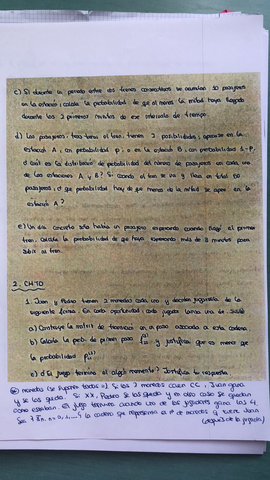 c) Si durante un periodo entre dos trenes consecutivos se acumulan 50 pasajeros
en la estación, calcula la probabilidad de que al menos la mitad haya llegado
durante los 3 primeros minutos de ese intervalo de tiempo.
d) Los pasajeros, tras tomar el tren, tienen 2 posibilidades, apearse en la
estación A, con probabilidad p, o en la estación B, con probabilidad 1-p.
¿Cuál es la distribución de probabilidad del número de pasajeros en cada una
de las estaciones A y B? Si cuando el tren se va y lleva en total 50
pasajeros, ¿qué probabilidad hay de que menos de la mitad se apee en la
estación A?
e) Un día concreto sólo había un pasajero esperando cuando llegó el primer
tren. Calcula la probabilidad de que haya esperado más de 3 minutos para
subir al tren.
2. CMTD
1. Juan y Pedro tienen 2 monedas cada uno y deciden jugárselas de la
siguiente forma. En cada oportunidad cada jugador lanza una de sus
a) Construye la matriz de transición en un paso asociada a esta cadena.
b) Calcula la prob. de primer paso y justifica que es menor que
la probabilidad
c) ¿El juego termina en algún momento? Justifica tu respuesta.
monedas (se supone todos =) Si las 2 monedas caen CC, Juan gana
y se las queda. Si XX, Pedro se las queda y en otro caso se quedan
como estaban. El juego termina cuando uno de los jugadores gana las 4.
Sea la cadena que representa el nº de monedas q tiene Juan
(después de la jugada n)